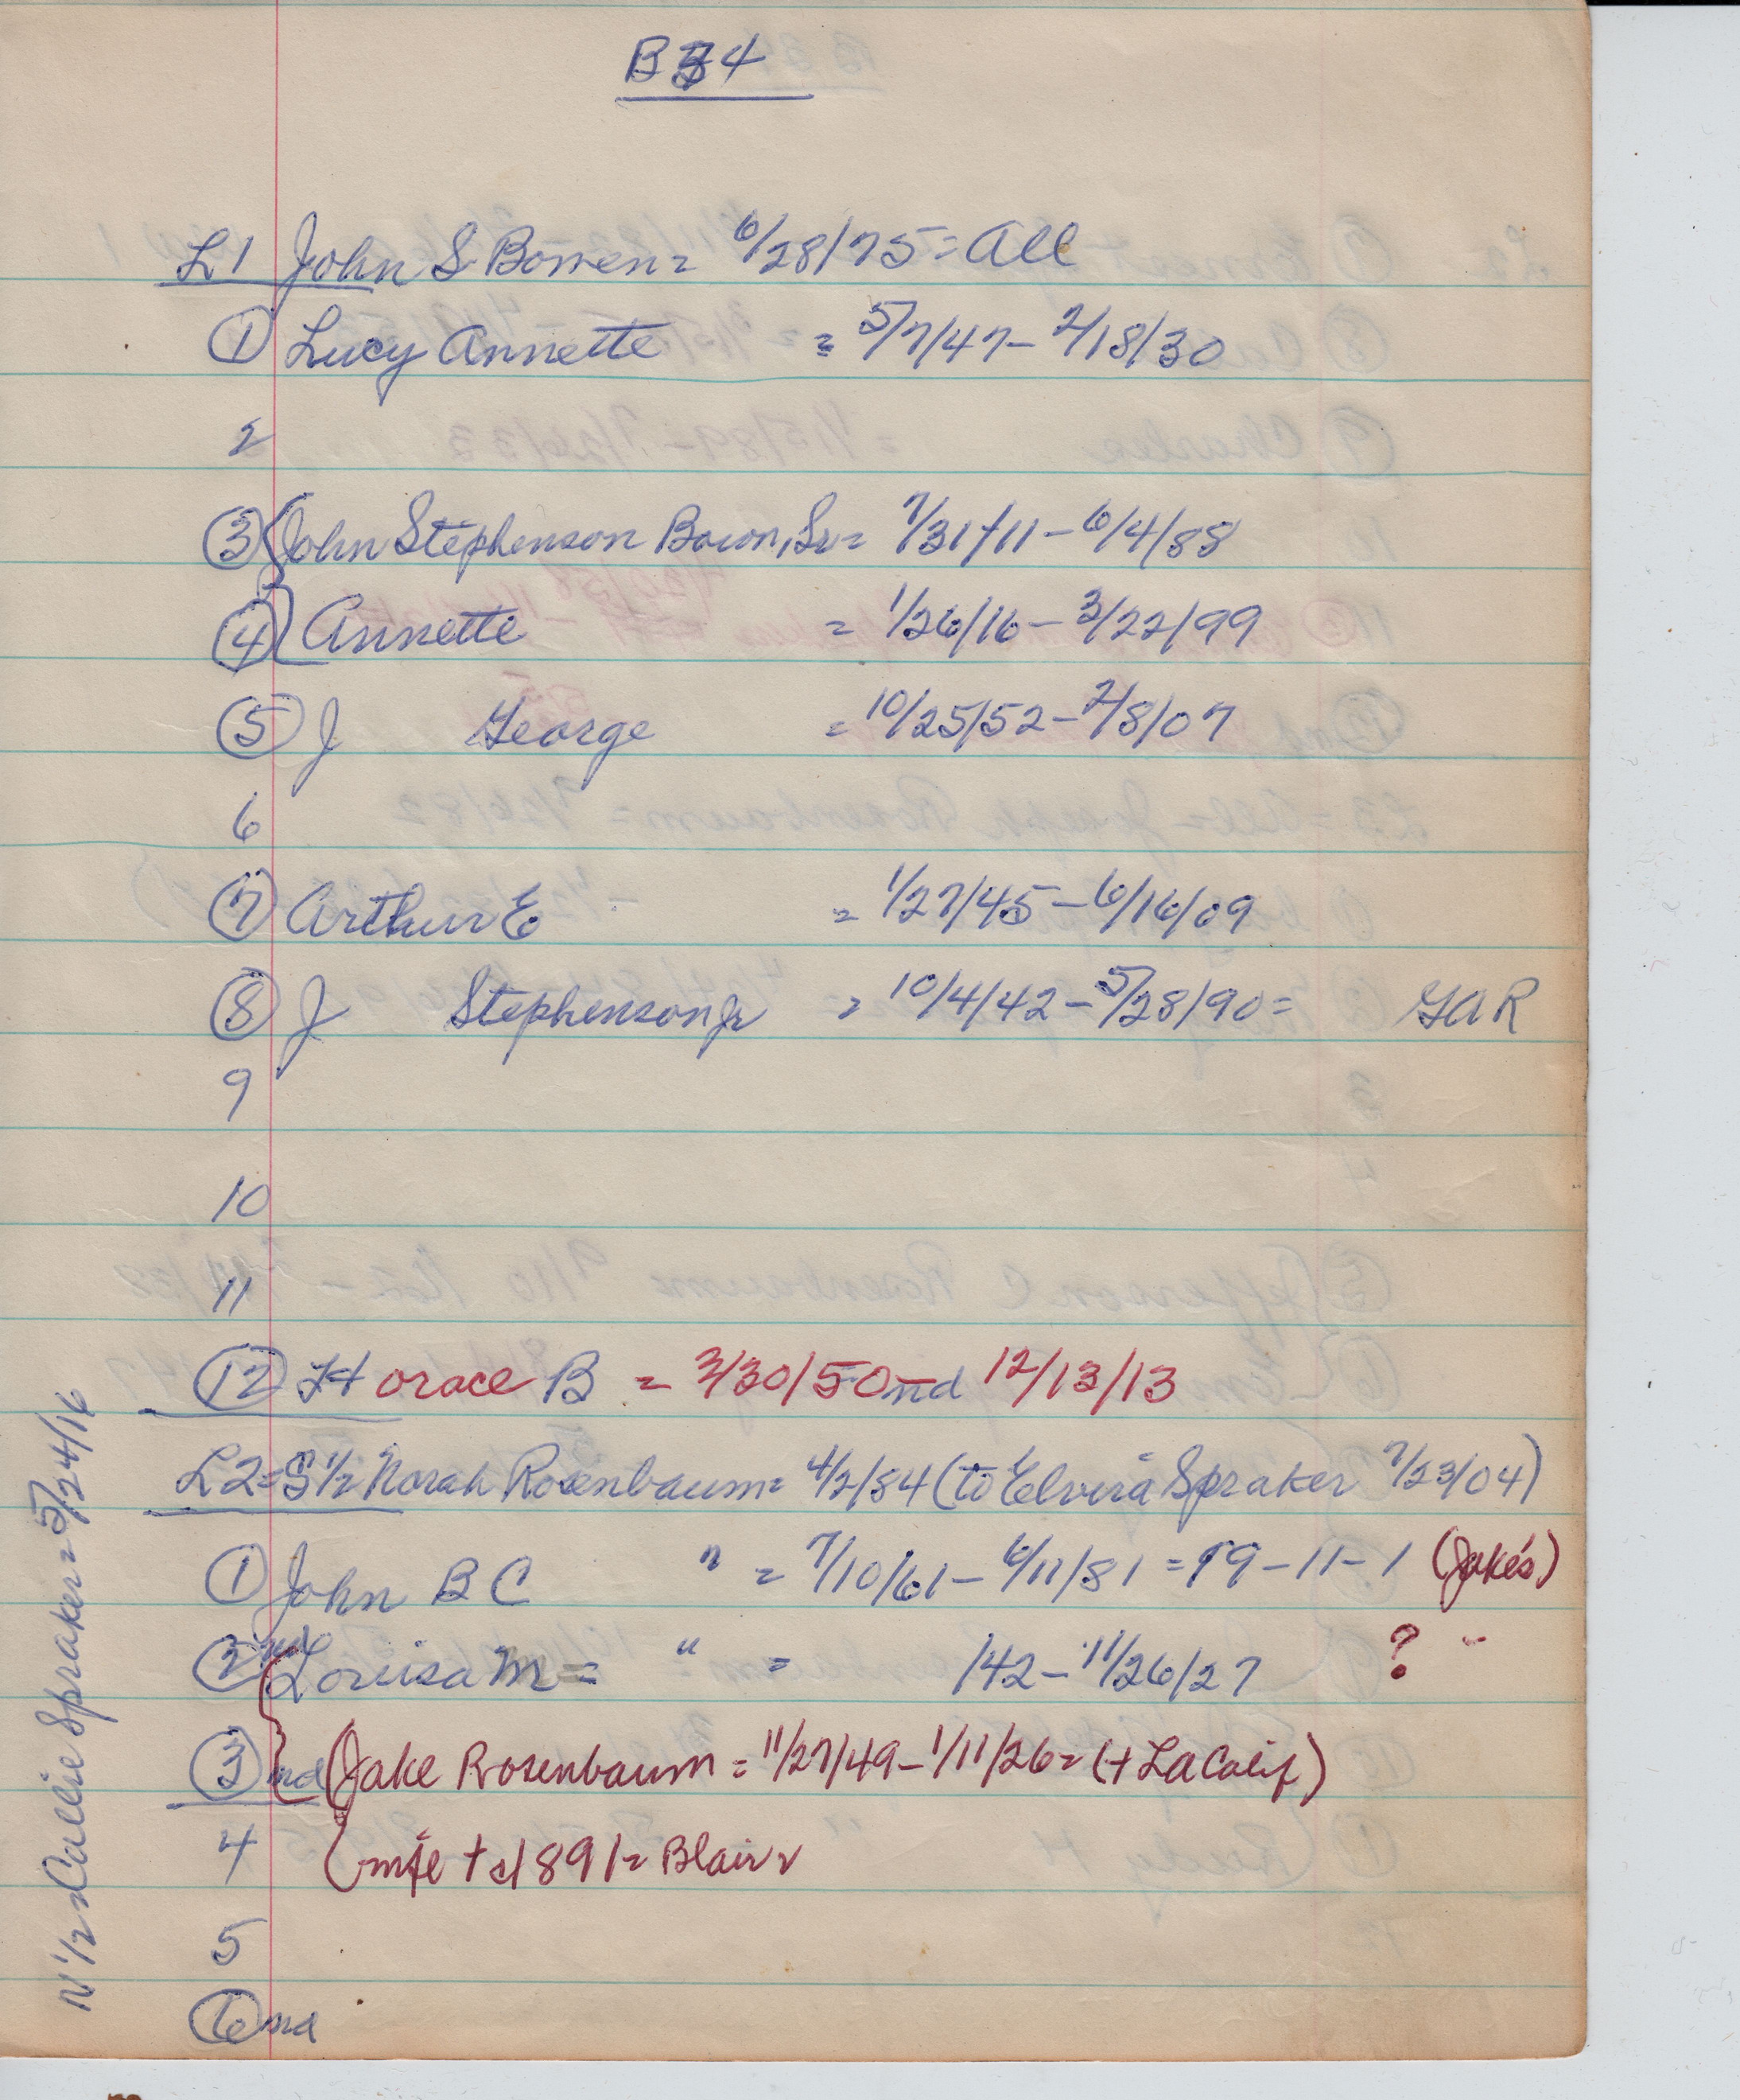 B 34
L1 John S Bowen = 6/28/75 = All
① Lucy Annette = 5/7/47 - 2/18/30
2
③ { John Stephenson Bowen, Sr = 7/31/11 - 6/4/88
④ } Annette = 1/26/16 - 3/22/99
⑤ J George = 10/25/52 - 2/8/07
6
⑦ Arthur E = 1/27/45 - 6/16/09
⑧ J Stephenson Jr = 10/4/42 - 5/28/90 = GAR
9
10
11
⑫ Horace B = 3/30/50 nd 12/13/13
L2 = S 1/2 Norah Rosenbaum = 4/2/84 (to Elvira Spraker 7/23/04)
① John B C " = 7/10/61 - 6/11/81 = 19-11-1 (Jake's)
② nd { Louisa M = " = /42 - 11/26/27 ? "
③ nd } (Jake Rosenbaum = 11/27/49 - 1/11/26 = (+ La Calif)
4 ( wife + 1891 = Blair
5
⑥ nd
N 1/2 = Callie Spraker = 5/24/16